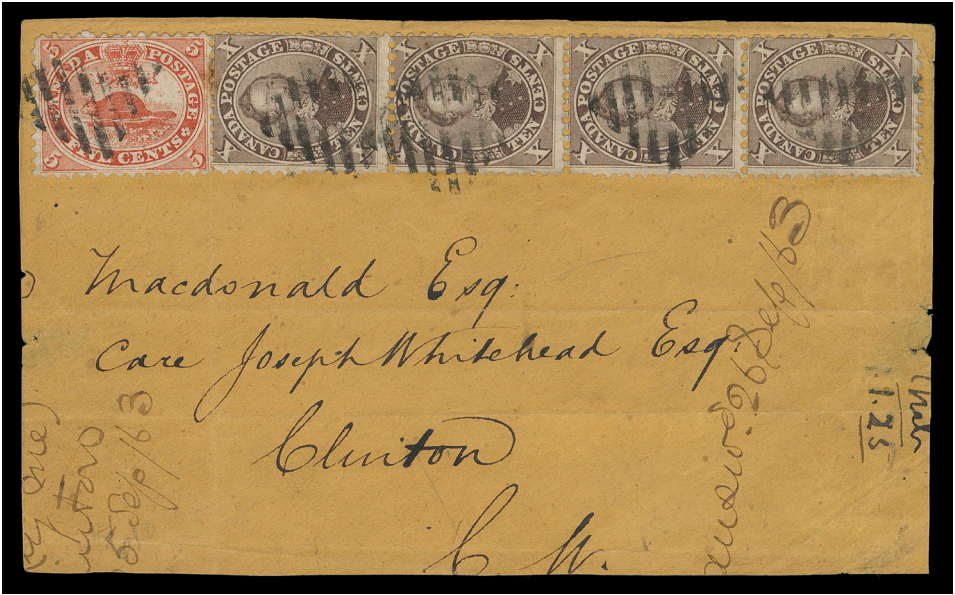 5 CANADA POSTAGE 5
5 CENTS 5
X CANADA POSTAGE X
X TEN CENTS X
X CANADA POSTAGE X
X TEN CENTS X
X CANADA POSTAGE X
X TEN CENTS X
X CANADA POSTAGE X
X TEN CENTS X
Macdonald Esq.
Care Joseph Whitehead Esq.
Clinton
C. W.
26 Sep/63
5 Sep/63
1.25